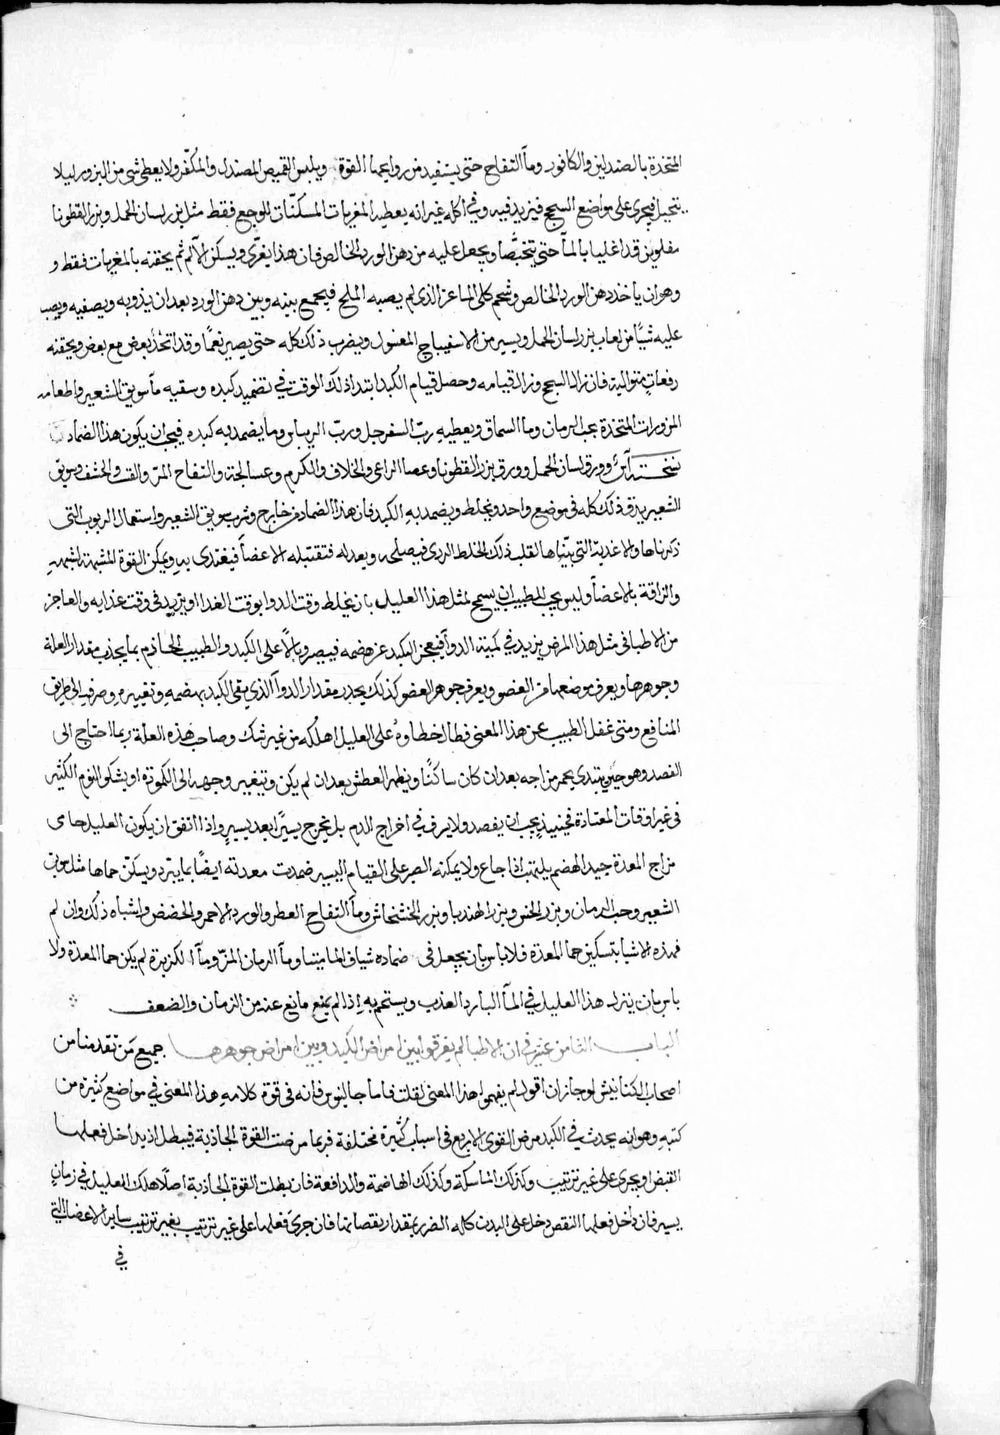 المتخذة بالصندلين والكافور ومآ التفاح حتى يستفيد من روايحها القوة ويلبس القميص المصندل والمكفر ولا يعطى شي من البزور ليلا
يتحيل فيجرى على مواضع السحج فيزيد فيه وفي اكله غير انه يعطيه المغريات المسكنات للوجع فقط مثل بزر لسان الحمل وبزر القطونا
مقلوين قد اغليا بالمآ حتى يتخبصا ويجعل عليه من دهن الورد الخالص فان هذا يغري ويسكن الالم ثم يحقنه بالمغريات فقط و
وهو ان ياخذ دهن الورد الخالص وشحم كلى الماعز الذى لم يصبه الملح فيجمع بينه وبين دهن الورد بعد ان يذوبه ويصفيه ويصب
عليه شيًا من لعاب بزر لسان الحمل ويسير من الاسفيداج المغسول ويضرب ذلك كله حتى يصير نعمًا وقد اتخذ بعض مع بعض ويحقنه
دفعات متوالية فان زال السحج وزال قيامه وحصل قيام الكبد ابتدا ذلك الوقت في تضميد كبده وسقيه مآ سويق الشعير واطعامه
المزورات المتخذة بحب الرمان وما السماق ويعطيه رب السفرجل ورب الريباس وما يضمد به كبده فيجب ان يكون هذا الضماد
نسخته وورق لسان الحمل وورق بزر القطونا وعصا الراعى والخلاف والكرم و والتفاح المر والحشف وسويق
الشعير يدق ذلك كله فى موضع واحد ويخلط ويضمد به الكبد فان هذا الضماد من خارج وشرب سويق الشعير واستعمال الربوب التى
ذكرناها والاغذية التى بيناها القلب ذلك الخلط الردى فيصلحه ويعدله فتقتبله الاعضآ فيغتدى به ويمكن القوة المشبهة
والزاقة بالاعضآ وليس يجب للطبيب ان يسمح لمثل هذا العليل بان يخلط وقت الدوا بوقت الغدا او يزيد فى وقت غذايه والعاجز
من الاطبا فى مثل هذا المرض يزيد في كمية الدوآ فيعجز الكبد عن هضمه فيصير وبالًا على الكبد والطبيب الحاذم بما يجذب مقدار العلة
وجوهرها ويعرف موضعها من العضو ويعرف جوهر العضو كذلك يحدر مقدار الدوآ الذي يقى الكبد بهضمه وتغييره وصرفه الى طريق
المنافع ومتى غفل الطبيب عن هذا المعنى فطال خطاوه على العليل اهلكه من غير شك وصاحب هذه العلة ربما احتاج الى
الفصد وهو حين يبتدى يحمر مزاجه بعد ان كان ساكنًا ويظهر العطش بعد ان لم يكن وتيغير وجهه الى الكموتة او يشكو النوم الكثير
فى غير اوقات المعتادة فحينيذ يجب ان يفصد ولا يسرف في اخراج الدم بل يخرج يسيرًا بعد يسير واذا اتفق ان يكون العليل حامى
مزاج المعدة جيد الهضم يلتهب اذا جاع ولا يمكنه الصبر على القيام اليسير ضمدت معدته ايضًا بما يبرد ويسكن حماها مثل سويق
الشعير وحب الرمان وبزر الخس وبزر الهندبا وبزر الخشخاش ومآ التفاح العطر والورد الاحمر والحضض واشباه ذلك وان لم
فهذه الاشيا بتسكين حما المعدة فلا باس بان يجعل فى ضماده شياف الماميثا ومآ الرمان المز ومآ الكزبرة لم يكن حما المعدة ولا
باس بان ينزل هذا العليل في المآ البارد العذب ويستحم به اذا لم يمنع مانع عنه من الزمان والضعف
الباب الثامن عشر في ان الاطبا لم يفرقوا بين امراض الكبد وبين امراض جوهرها جميع من تقدمنا من
اصحاب الكنانيش لو جاز ان اقول لم يفهموا هذا المعنى لقلت فاما جالينوس فانه فى قوة كلامه هذا المعنى في مواضع كثيرة من
كتبه وهو انه يحدث في الكبد مرض القوى الاربع فى اسباب كثيرة مختلفة فربما مرضت القوة الجاذبة فيبطل اذ يداخل فعلها
القبض او يجرى على غير ترتيب وكذلك الماسكة وكذلك الهاضمة والدافعة فان بطلت القوة الجاذبة اصلًا هلك العليل في زمان
يسير فان داخل فعلها النقص دخل على البدن كله الضرر بمقدار نقصانها فان جرى فعلها على غير ترتيب بغير ترتيب ساير الاعضا التي
في